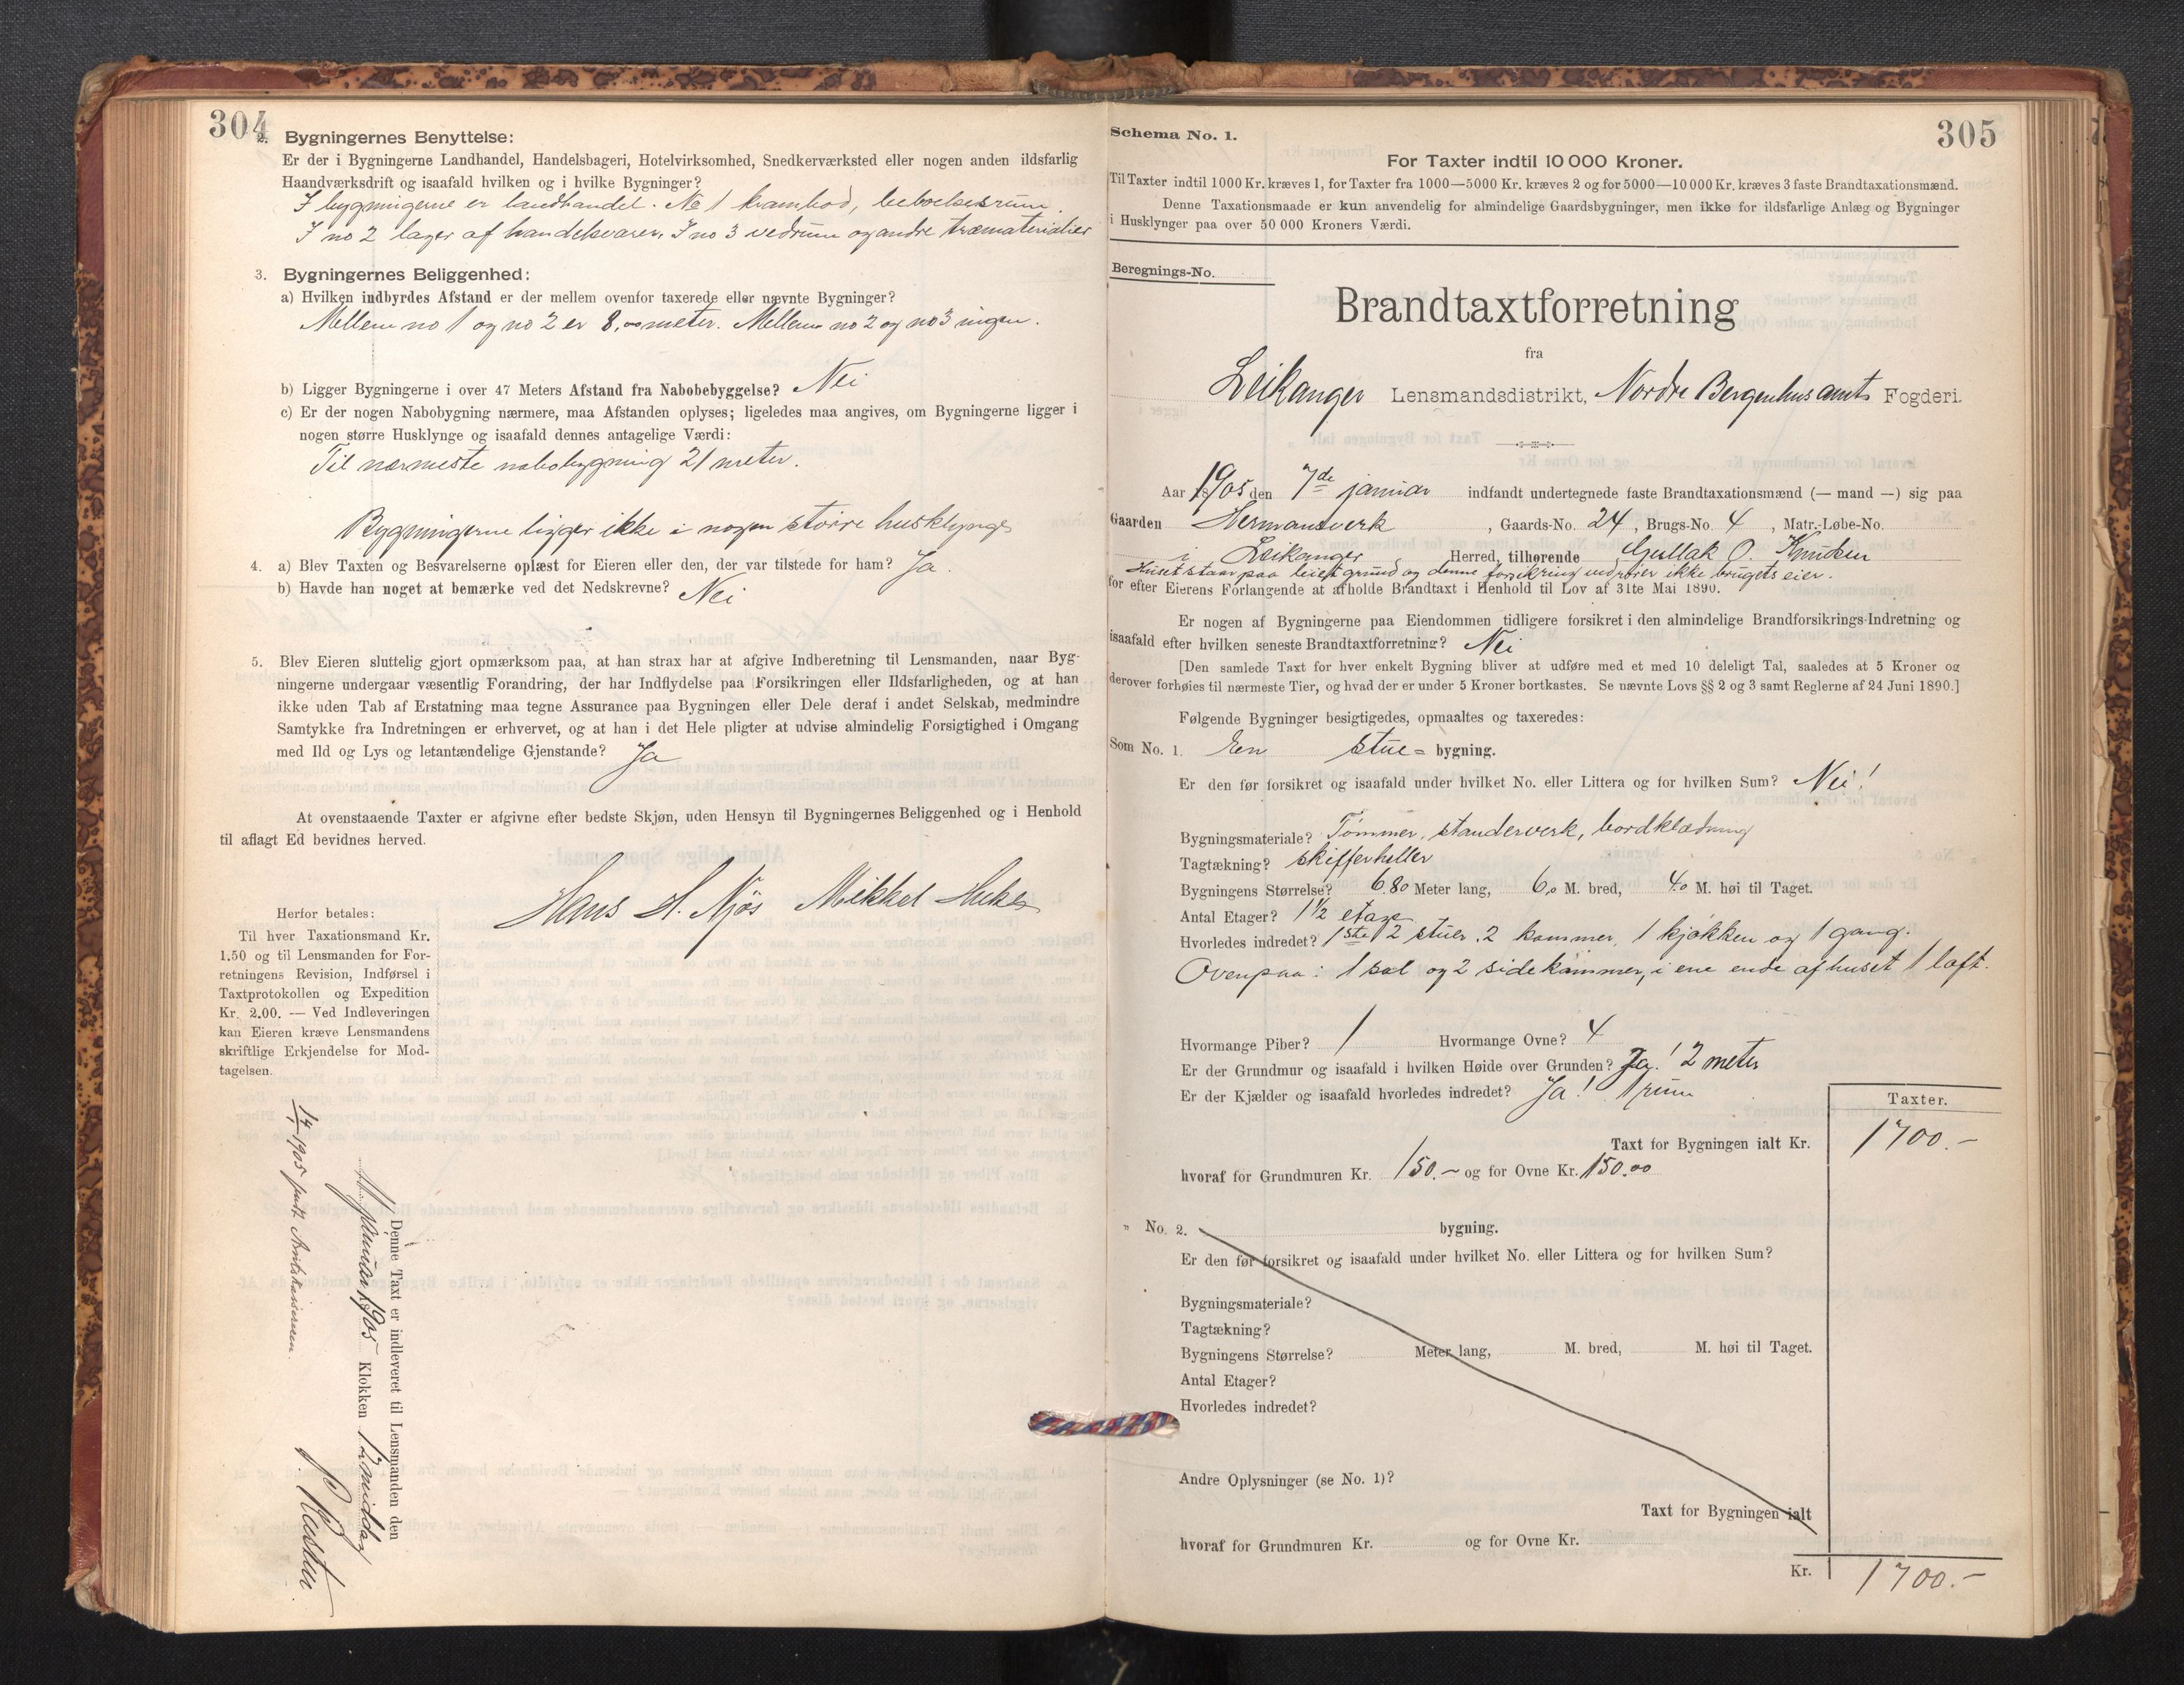 304
2. Bygningernes Benyttelse:
Er der i Bygningerne Landhandel, Handelsbageri, Hotelvirksomhed, Snedkerværksted eller nogen anden ildsfarlig
Haandværksdrift og isaafald hvilken og i hvilke Bygninger?
I bygningerne er landhandel. No 1 krambod, beboelsesrum.
I no 2 lager af handelsvarer, I no 3 vedrum og andre træmaterialier
3. Bygningernes Beliggenhed:
a) Hvilken indbyrdes Afstand er der mellem ovenfor taxerede eller nævnte Bygninger?
Mellem no 1 og no 2 er 8,00 meter. Mellem no 2 og no 3 ingen.
b) Ligger Bygningerne i over 47 Meters Afstand fra Nabobebyggelse? Nei
c) Er der nogen Nabobygning nærmere, maa Afstanden oplyses; ligeledes maa angives, om Bygningerne ligger i
nogen større Husklynge og isaafald dennes antagelige Værdi:
Til nærmeste nabobygning 21 meter.
Bygningerne ligger ikke i nogen større husklynge
4. a) Blev Taxten og Besvarelserne oplæst for Eieren eller den, der var tilstede for ham? Ja.
b) Havde han noget at bemærke ved det Nedskrevne? Nei
5. Blev Eieren sluttelig gjort opmærksom paa, at han strax har at afgive Indberetning til Lensmanden, naar Byg-
ningerne undergaar væsentlig Forandring, der har Indflydelse paa Forsikringen eller Ildsfarligheden, og at han
ikke uden Tab af Erstatning maa tegne Assurance paa Bygningen eller Dele deraf i andet Selskab, medmindre
Samtykke fra Indretningen er erhvervet, og at han i det Hele pligter at udvise almindelig Forsigtighed i Omgang
med Ild og Lys og letantændelige Gjenstande? Ja
At ovenstaaende Taxter er afgivne efter bedste Skjøn, uden Hensyn til Bygningernes Beliggenhed og i Henhold
til aflagt Ed bevidnes herved.
Hans H. Njøs Mikkel Huke
Herfor betales:
Til hver Taxationsmand Kr.
1.50 og til Lensmanden for For-
retningens Revision, Indførsel i
Taxtprotokollen og Expedition
Kr. 2.00. — Ved Indleveringen
kan Eieren kræve Lensmandens
skriftlige Erkjendelse for Mod-
tagelsen.
Denne Taxt er indleveret til Lensmanden den
11 januar 1905 Klokken 12 middag
14/1 1905
305
Schema No. 1.
For Taxter indtil 10 000 Kroner.
Til Taxter indtil 1000 Kr. kræves 1, for Taxter fra 1000—5000 Kr. kræves 2 og for 5000—10 000 Kr. kræves 3 faste Brandtaxationsmænd.
Denne Taxationsmaade er kun anvendelig for almindelige Gaardsbygninger, men ikke for ildsfarlige Anlæg og Bygninger
i Husklynger paa over 50 000 Kroners Værdi.
Beregnings-No.
Brandtaxtforretning
fra
Leikanger Lensmandsdistrikt, Nordre Bergenhus amts Fogderi.
Aar 1905 den 7de januar indfandt undertegnede faste Brandtaxationsmænd (— mand —) sig paa
Gaarden Hermansverk, Gaards-No. 24, Brugs-No. 4, Matr.-Løbe-No.
i Leikanger Herred, tilhørende Gullak O. Knudsen
Huset staar paa leiet grund og denne forsikring vedrører ikke brugets eier.
for efter Eierens Forlangende at afholde Brandtaxt i Henhold til Lov af 31te Mai 1890.
Er nogen af Bygningerne paa Eiendommen tidligere forsikret i den almindelige Brandforsikrings-Indretning og
isaafald efter hvilken seneste Brandtaxtforretning? Nei
[Den samlede Taxt for hver enkelt Bygning bliver at udføre med et med 10 deleligt Tal, saaledes at 5 Kroner og
derover forhøies til nærmeste Tier, og hvad der er under 5 Kroner bortkastes. Se nævnte Lovs §§ 2 og 3 samt Reglerne af 24 Juni 1890.]
Følgende Bygninger besigtigedes, opmaaltes og taxeredes:
Som No. 1. En stue= bygning.
Er den før forsikret og isaafald under hvilket No. eller Littera og for hvilken Sum? Nei!
Bygningsmateriale? Tømmer, standerverk, bordklædning
Tagtækning? skifferheller
Bygningens Størrelse? 6.80 Meter lang, 6.0 M. bred, 4.0 M. høi til Taget.
Antal Etager? 1 1/2 etage
Hvorledes indredet? 1ste 2 stuer. 2 kammer, 1 kjøkken og 1 gang.
Ovenpaa: 1 sal og 2 sidekammer, i ene ende af huset 1 loft.
Hvormange Piber? 1 Hvormange Ovne? 4
Er der Grundmur og isaafald i hvilken Høide over Grunden? Ja! 2 meter
Er der Kjælder og isaafald hvorledes indredet? Ja! 1 rum
Taxter.
Taxt for Bygningen ialt Kr. 1700.-
hvoraf for Grundmuren Kr. 150.- og for Ovne Kr. 150.00
" No. 2. bygning.
Er den før forsikret og isaafald under hvilket No. eller Littera og for hvilken Sum?
Bygningsmateriale?
Tagtækning?
Bygningens Størrelse? Meter lang, M. bred, M. høi til Taget.
Antal Etager?
Hvorledes indredet?
Andre Oplysninger (se No. 1)?
Taxt for Bygningen ialt
hvoraf for Grundmuren Kr. og for Ovne Kr.
Kr. 1700.-